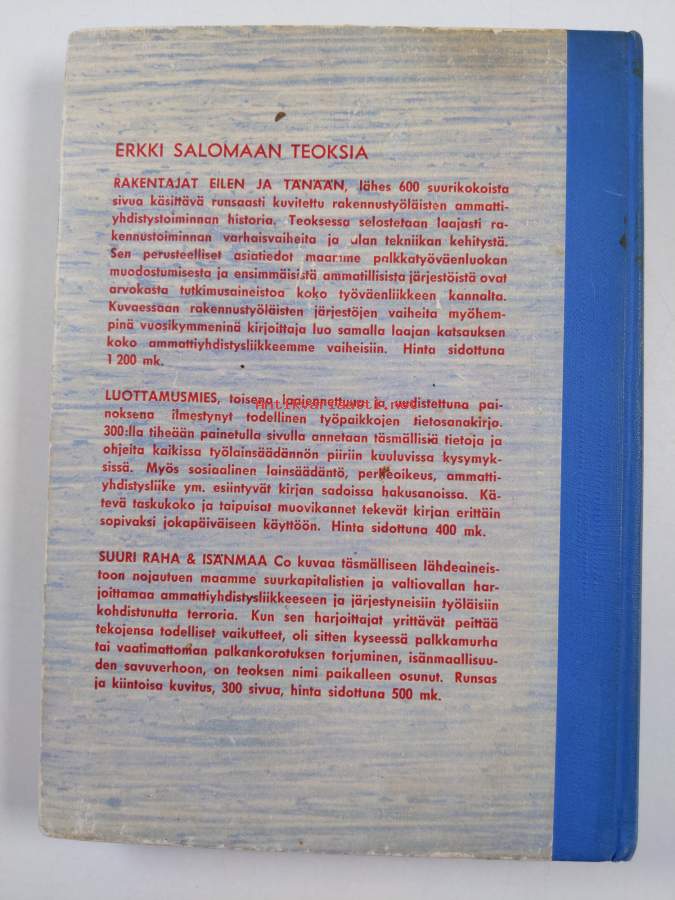 ERKKI SALOMAAN TEOKSIA
RAKENTAJAT EILEN JA TÄNÄÄN, lähes 600 suurikokoista
sivua käsittävä runsaasti kuvitettu rakennustyöläisten ammatti-
yhdistystoiminnan historia. Teoksessa selostetaan laajasti ra-
kennustoiminnan varhaisvaiheita ja alan tekniikan kehitystä.
Sen perusteelliset asiatiedot maamme palkkatyöväenluokan
muodostumisesta ja ensimmäisistä ammatillisista järjestöistä ovat
arvokasta tutkimusaineistoa koko työväenliikkeen kannalta.
Kuvaessaan rakennustyöläisten järjestöjen vaiheita myöhem-
pinä vuosikymmeninä kirjoittaja luo samalla laajan katsauksen
koko ammattiyhdistysliikkeemme vaiheisiin. Hinta sidottuna
1 200 mk.
LUOTTAMUSMIES, toisena laajennettuna ja uudistettuna pai-
noksena ilmestynyt todellinen työpaikkojen tietosanakirja.
300:lla tiheään painetulla sivulla annetaan täsmällisiä tietoja ja
ohjeita kaikissa työlainsäädännön piiriin kuuluvissa kysymyk-
sissä. Myös sosiaalinen lainsäädäntö, perheoikeus, ammatti-
yhdistysliike ym. esiintyvät kirjan sadoissa hakusanoissa. Kä-
tevä taskukoko ja taipuisat muovikannet tekevät kirjan erittäin
sopivaksi jokapäiväiseen käyttöön. Hinta sidottuna 400 mk.
SUURI RAHA & ISÄNMAA Co kuvaa täsmälliseen lähdeaineis-
toon nojautuen maamme suurkapitalistien ja valtiovallan har-
joittamaa ammattiyhdistysliikkeeseen ja järjestyneisiin työläisiin
kohdistunutta terroria. Kun sen harjoittajat yrittävät peittää
tekojensa todelliset vaikutteet, oli sitten kyseessä palkkamurha
tai vaatimattoman palkankorotuksen torjuminen, isänmaallisuu-
den savuverhoon, on teoksen nimi paikalleen osunut. Runsas
ja kiintoisa kuvitus, 300 sivua, hinta sidottuna 500 mk.